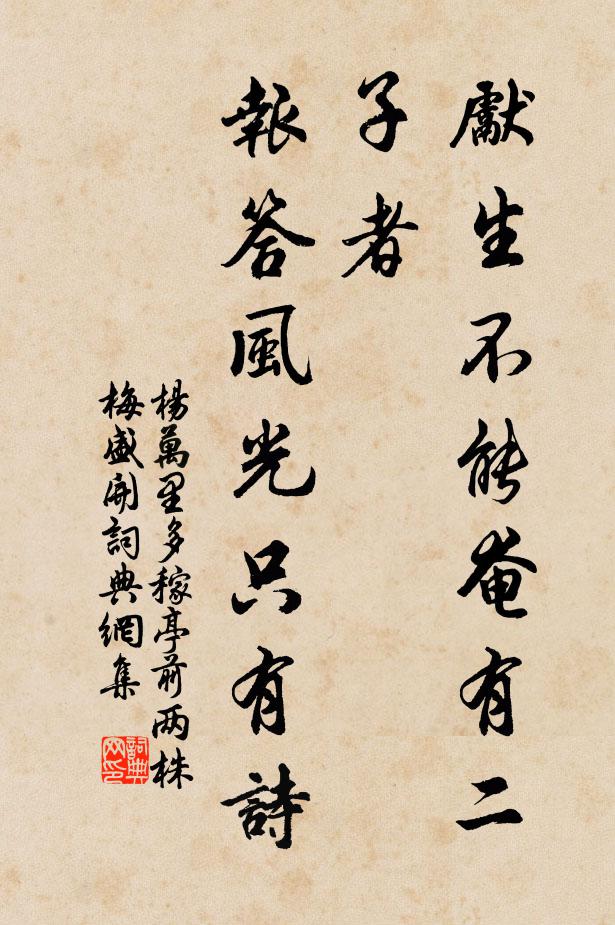 獻生不能奄有二
子者
報答風光只有詩
楊萬里多稼亭前两株
梅盛開詞典網集
詞典
网印